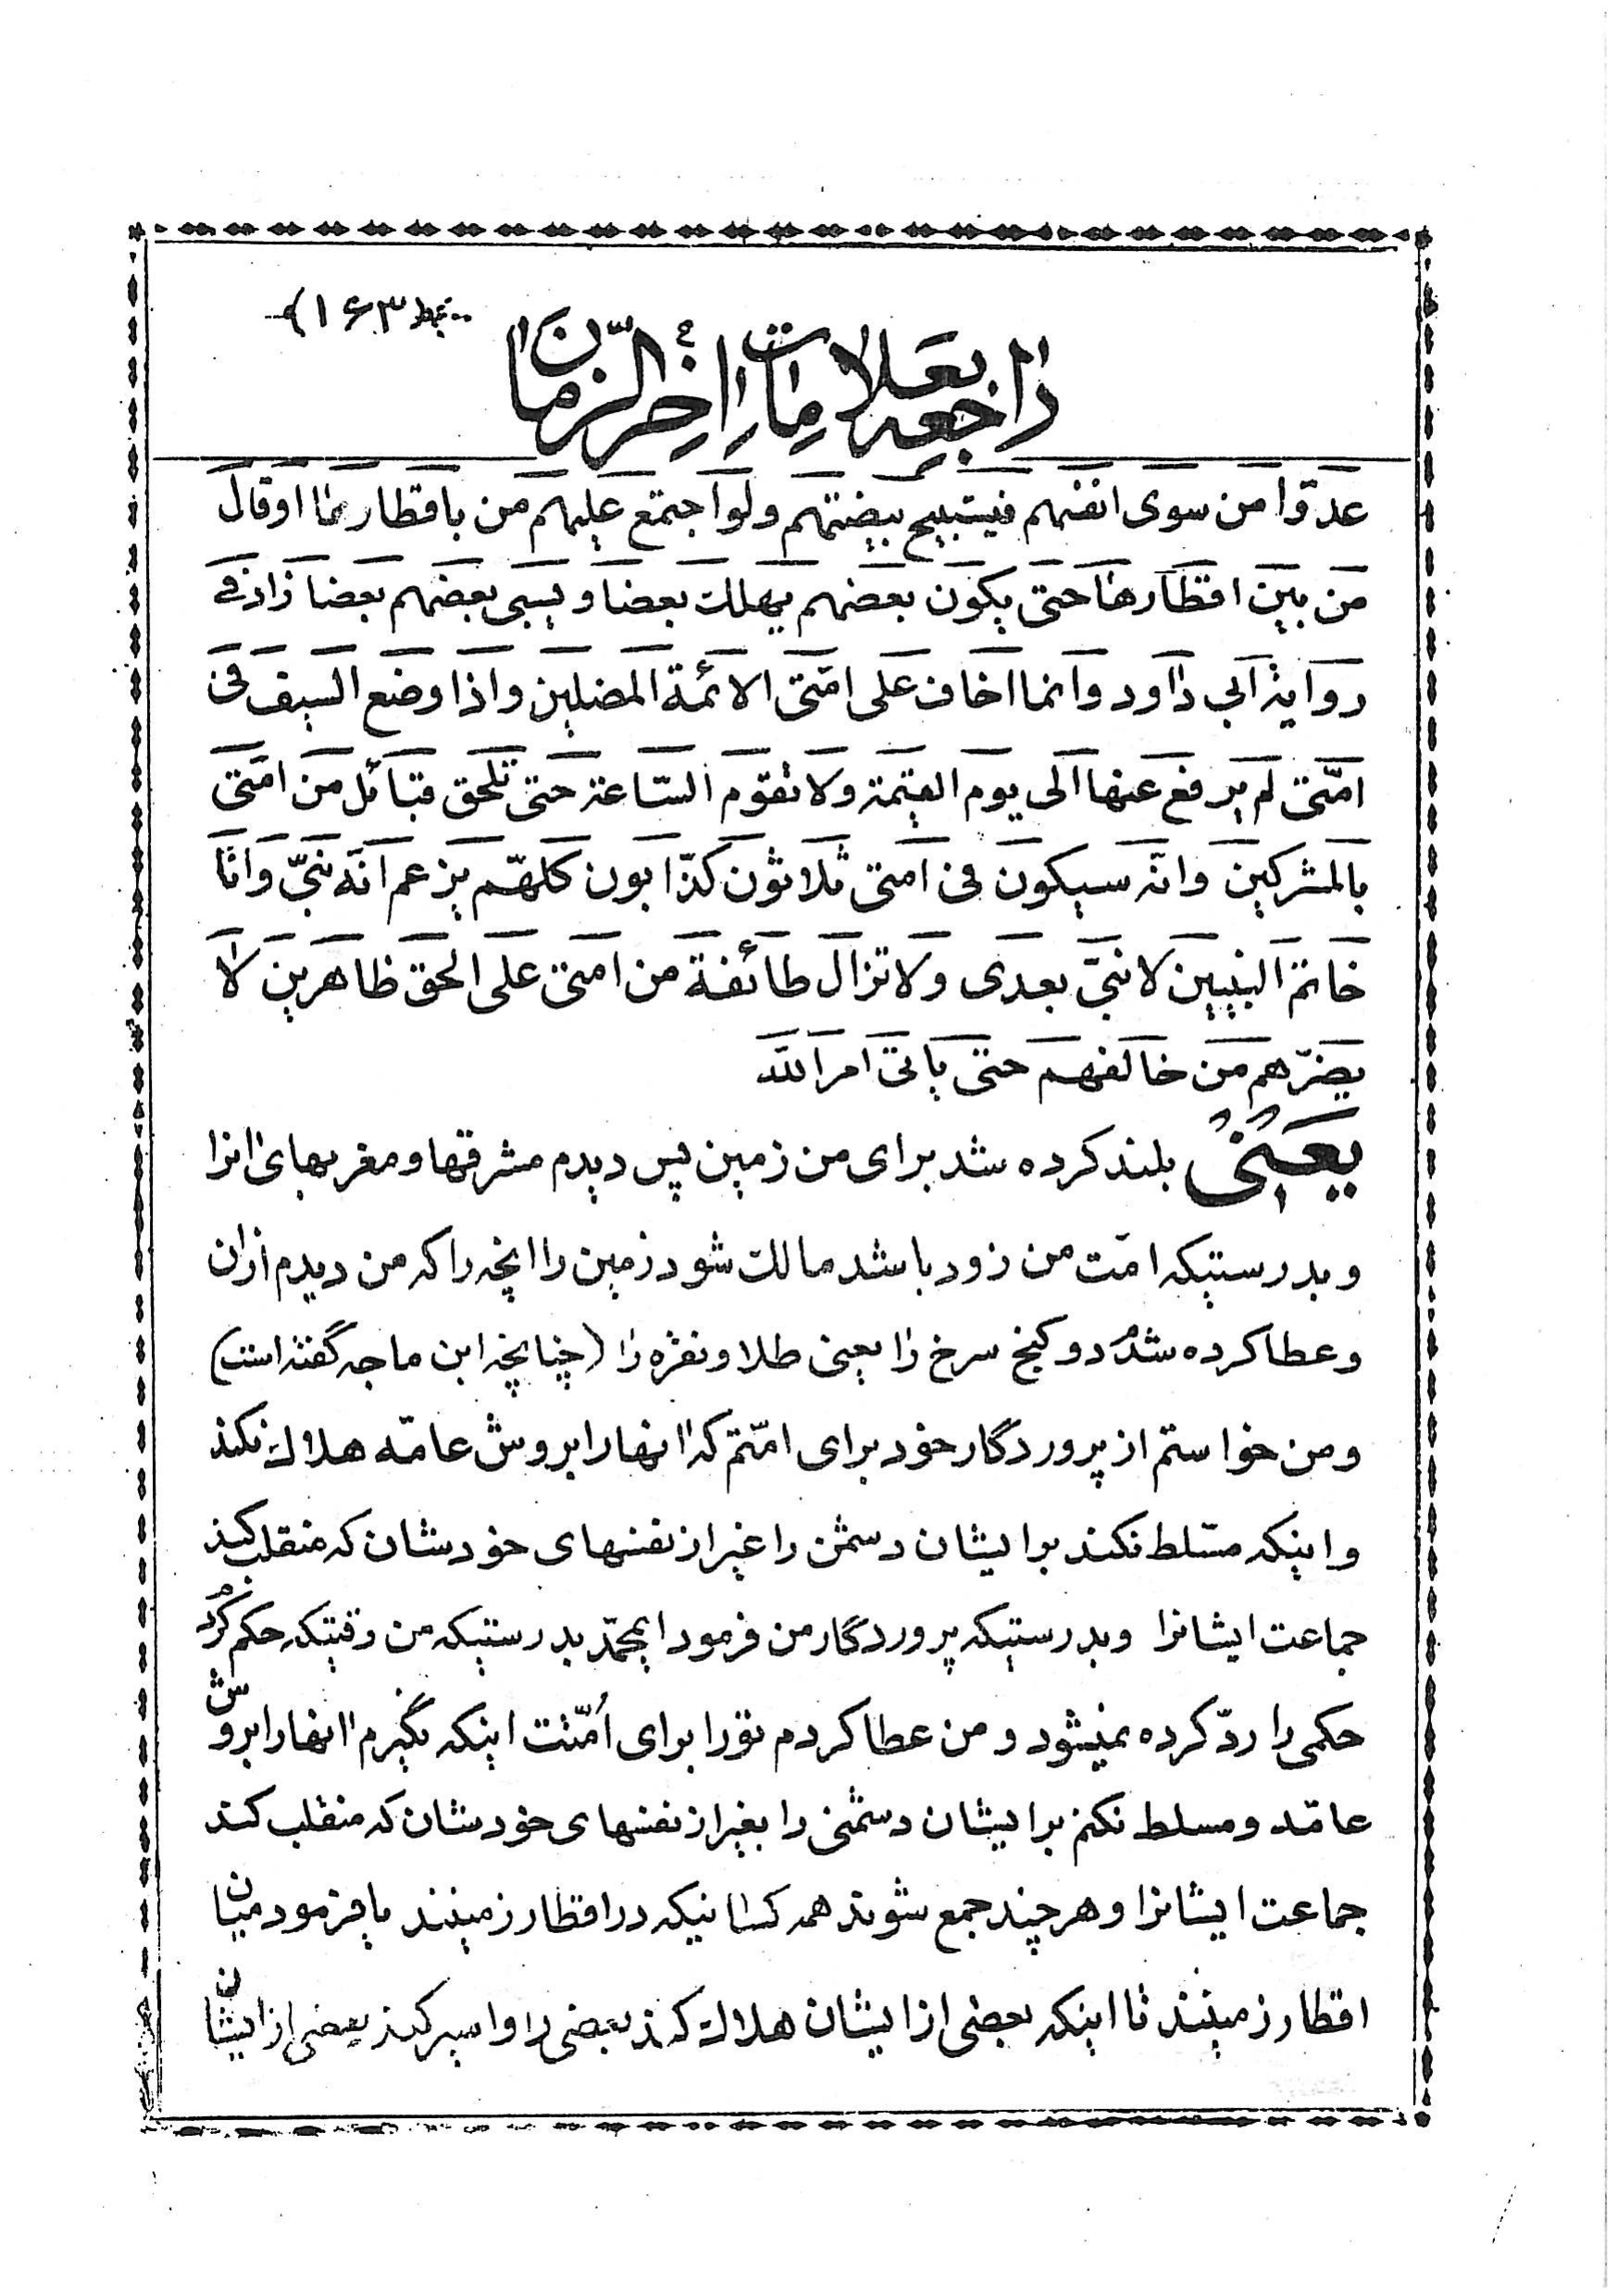 ﴿۱۶۳﴾
راجعه بعلامات اخر الزمان
عدوّا من سوى انفسهم فيستبيح بيضتهم ولو اجتمع عليهم من باقطارها او قال
من بين اقطارها حتى يكون بعضهم يهلك بعضا و يسبى بعضهم بعضا زاد فى
رواية ابي داود وانما اخاف على امّتى الائمة المضلين واذا وضع السيف فى
امّتى لم يرفع عنها الى يوم القيمة ولا تقوم السّاعة حتى تلحق قبائل من امّتى
بالمشركين وانّه سيكون فى امتى ثلاثون كذّابون كلهّم يزعم انّه نبىّ وانا
خاتم النبيين لا نبىّ بعدى ولا تزال طائفة من امتى على الحق ظاهرين لا
يضرّهم من خالفهم حتى ياتى امر الله
يعنى بلند كرده شد براى من زمين پس ديدم مشرقها و مغربهاى انرا
و بدرستيكه امّت من زود باشد مالك شود زمين را انچه را كه من ديدم ازان
و عطا كرده شدم دو كنج سرخ را يعنى طلا و نقره را (چنانچه ابن ماجه گفته است)
و من خواستم از پروردگار خود براى امّتم كه انها را بروش عامّه هلاك نكند
و اينكه مسّلط نكند بر ايشان دشمن را غير از نفسهاى خودشان كه منقلب كند
جماعت ايشانرا و بدرستيكه پروردگار من فرمود ايمحمّد بدرستيكه من وقتيكه حكم كردم
حكمى را ردّ كرده نميشود و من عطا كردم تو را براى اُمّتت اينكه نگيرم انها را بروش
عامّه و مسلط نكنم بر ايشان دشمنى را بغير از نفسهاى خودشان كه منقلب كند
جماعت ايشانرا و هرچند جمع شوند همه كسانيكه در اقطار زمينند يا فرمود ميان
اقطار زمينند تا اينكه بعضى از ايشان هلاك كند بعضى را و اسير كند بعضى از ايشان